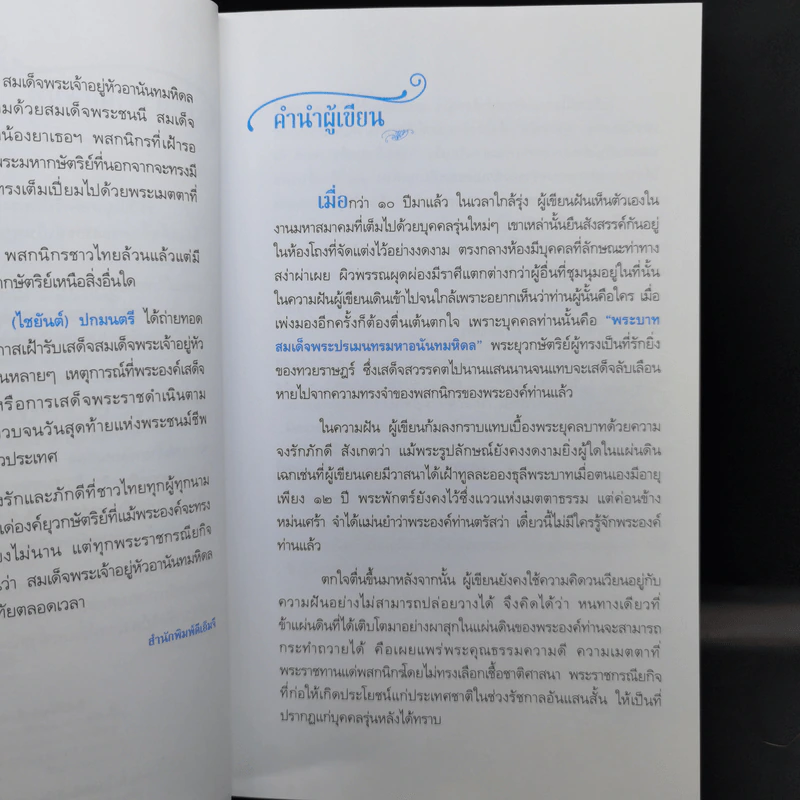 สมเด็จพระเจ้าอยู่หัวอานันทมหิดล
ด้วยสมเด็จพระชนนี สมเด็จ
น้องยาเธอฯ พสกนิกรที่เฝ้ารอ
พระมหากษัตริย์ที่นอกจากจะทรงมี
ทรงเต็มเปี่ยมไปด้วยพระเมตตาที่
พสกนิกรชาวไทยล้วนแล้วแต่มี
กษัตริย์เหนือสิ่งอื่นใด
(ไชยันต์) ปกมนตรี ได้ถ่ายทอด
เฝ้ารับเสด็จสมเด็จพระเจ้าอยู่หัว
หลายๆ เหตุการณ์ที่พระองค์เสด็จ
หรือการเสด็จพระราชดำเนินตาม
จนวันสุดท้ายแห่งพระชนม์ชีพ
ประเทศ
รักและภักดีที่ชาวไทยทุกผู้ทุกนาม
องค์ยุวกษัตริย์ที่แม้พระองค์จะทรง
ไม่นาน แต่ทุกพระราชกรณียกิจ
ว่า สมเด็จพระเจ้าอยู่หัวอานันทมหิดล
ตลอดเวลา
สำนักพิมพ์ดีเอ็มจี
คำนำผู้เขียน
เมื่อกว่า ๑๐ ปีมาแล้ว ในเวลาใกล้รุ่ง ผู้เขียนฝันเห็นตัวเองใน
งานมหาสมาคมที่เต็มไปด้วยบุคคลรุ่นใหม่ๆ เขาเหล่านั้นยืนสังสรรค์กันอยู่
ในห้องโถงที่จัดแต่งไว้อย่างงดงาม ตรงกลางห้องมีบุคคลที่ลักษณะท่าทาง
สง่าผ่าเผย ผิวพรรณผุดผ่องมีราศีแตกต่างกว่าผู้อื่นที่ชุมนุมอยู่ในที่นั้น
ในความฝันผู้เขียนเดินเข้าไปจนใกล้เพราะอยากเห็นว่าท่านผู้นั้นคือใคร เมื่อ
เพ่งมองอีกครั้งก็ต้องตื่นเต้นตกใจ เพราะบุคคลท่านนั้นคือ “พระบาท
สมเด็จพระปรเมนทรมหาอนันทมหิดล” พระยุวกษัตริย์ผู้ทรงเป็นที่รักยิ่ง
ของทวยราษฎร์ ซึ่งเสด็จสวรรคตไปนานแสนนานจนแทบจะเสด็จลับเลือน
หายไปจากความทรงจำของพสกนิกรของพระองค์ท่านแล้ว
ในความฝัน ผู้เขียนก้มลงกราบแทบเบื้องพระยุคลบาทด้วยความ
จงรักภักดี สังเกตว่า แม้พระรูปลักษณ์ยังคงงดงามยิ่งผู้ใดในแผ่นดิน
เฉกเช่นที่ผู้เขียนเคยมีวาสนาได้เฝ้าทูลละอองธุลีพระบาทเมื่อตนเองมีอายุ
เพียง ๑๒ ปี พระพักตร์ยังคงไว้ซึ่งแววแห่งเมตตาธรรม แต่ค่อนข้าง
หม่นเศร้า จำได้แม่นยำว่าพระองค์ท่านตรัสว่า เดี๋ยวนี้ไม่มีใครรู้จักพระองค์
ท่านแล้ว
ตกใจตื่นขึ้นมาหลังจากนั้น ผู้เขียนยังคงใช้ความคิดวนเวียนอยู่กับ
ความฝันอย่างไม่สามารถปล่อยวางได้ จึงคิดได้ว่า หนทางเดียวที่
ข้าแผ่นดินที่ได้เติบโตมาอย่างผาสุกในแผ่นดินของพระองค์ท่านจะสามารถ
กระทำถวายได้ คือเผยแพร่พระคุณธรรมความดี ความเมตตาที่
พระราชทานแด่พสกนิกรโดยไม่ทรงเลือกเชื้อชาติศาสนา พระราชกรณียกิจ
ที่ก่อให้เกิดประโยชน์แก่ประเทศชาติในช่วงรัชกาลอันแสนสั้น ให้เป็นที่
ปรากฏแก่บุคคลรุ่นหลังได้ทราบ